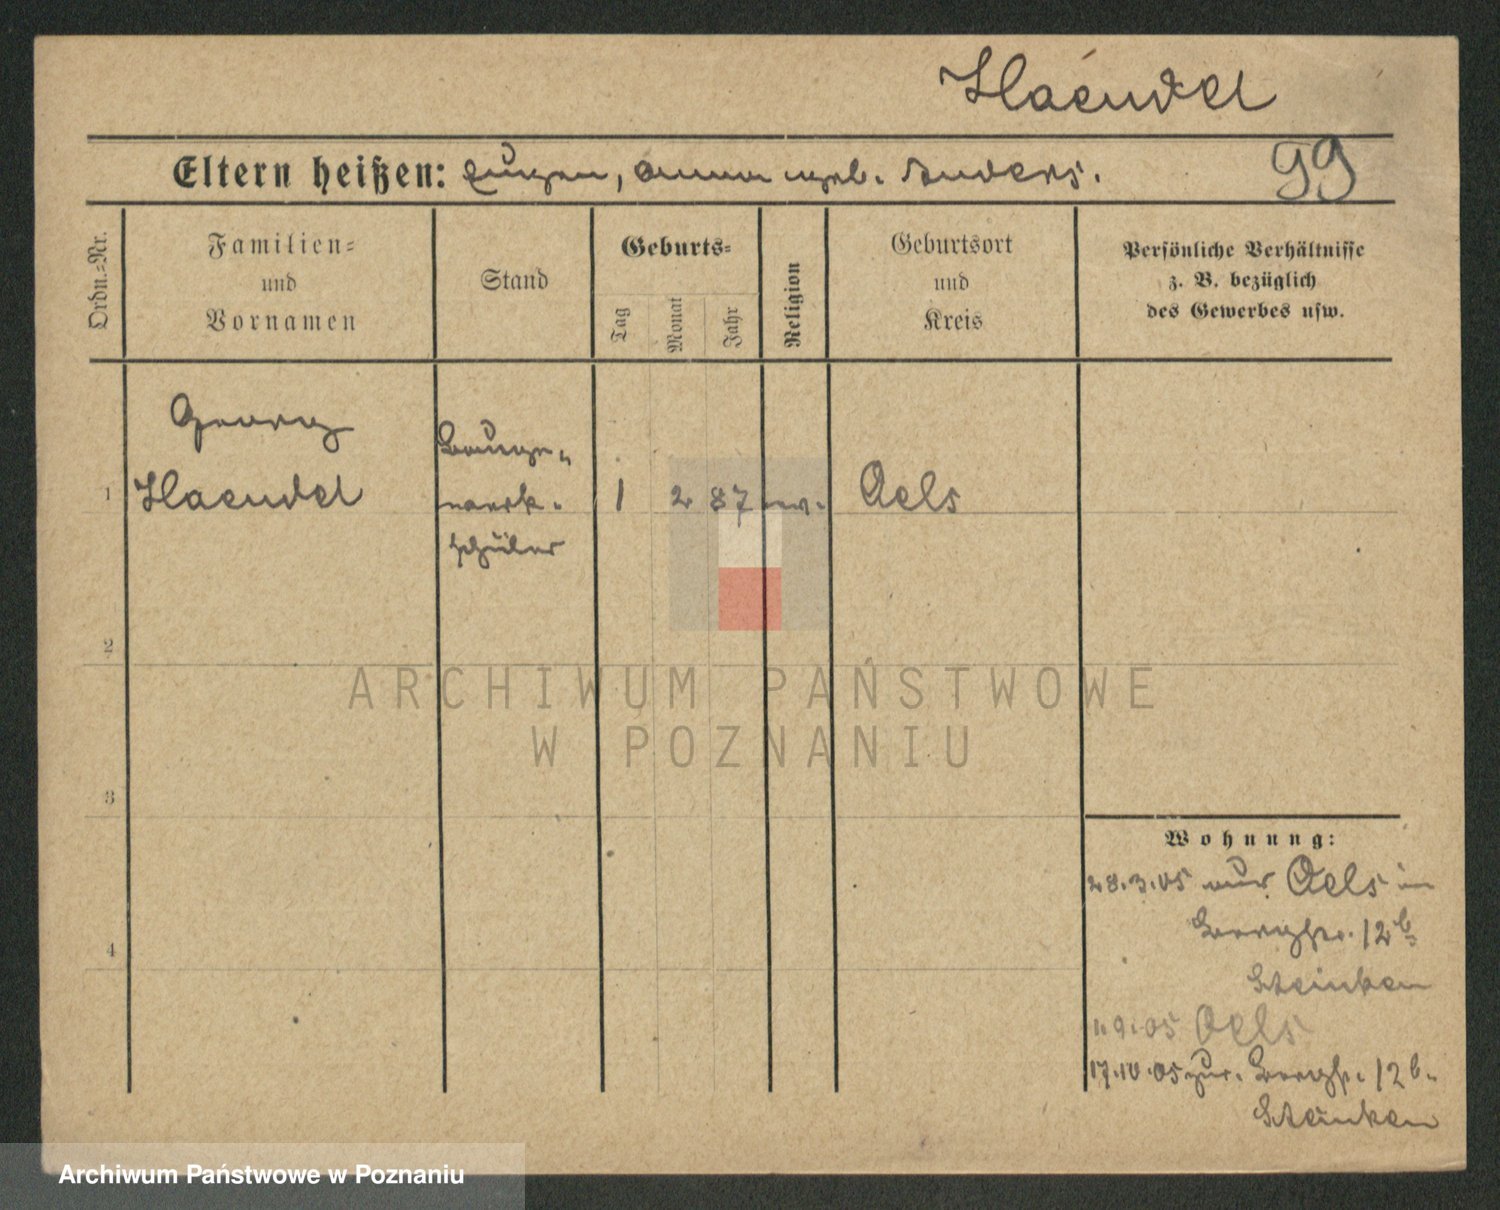 Haendel
Eltern heißen: Eugen, Anna geb. Anders.
99
Ordn.=Nr.
Familien=
und
Vornamen
Stand
Geburts=
Tag
Monat
Jahr
Religion
Geburtsort
und
Kreis
Persönliche Verhältnisse
z. B. bezüglich
des Gewerbes usw.
Georg
1 Haendel
Bauge=
werk=
schüler
1 2 87 ev. Oels
2
ARCHIWUM PAŃSTWOWE
W POZNANIU
3
Wohnung:
28.3.05 aus Oels in
Bergstr. 12b
Steinken
4
1.9.05 Oels
17.10.05 zur. Bergstr. 12b.
Steinken
Archiwum Państwowe w Poznaniu